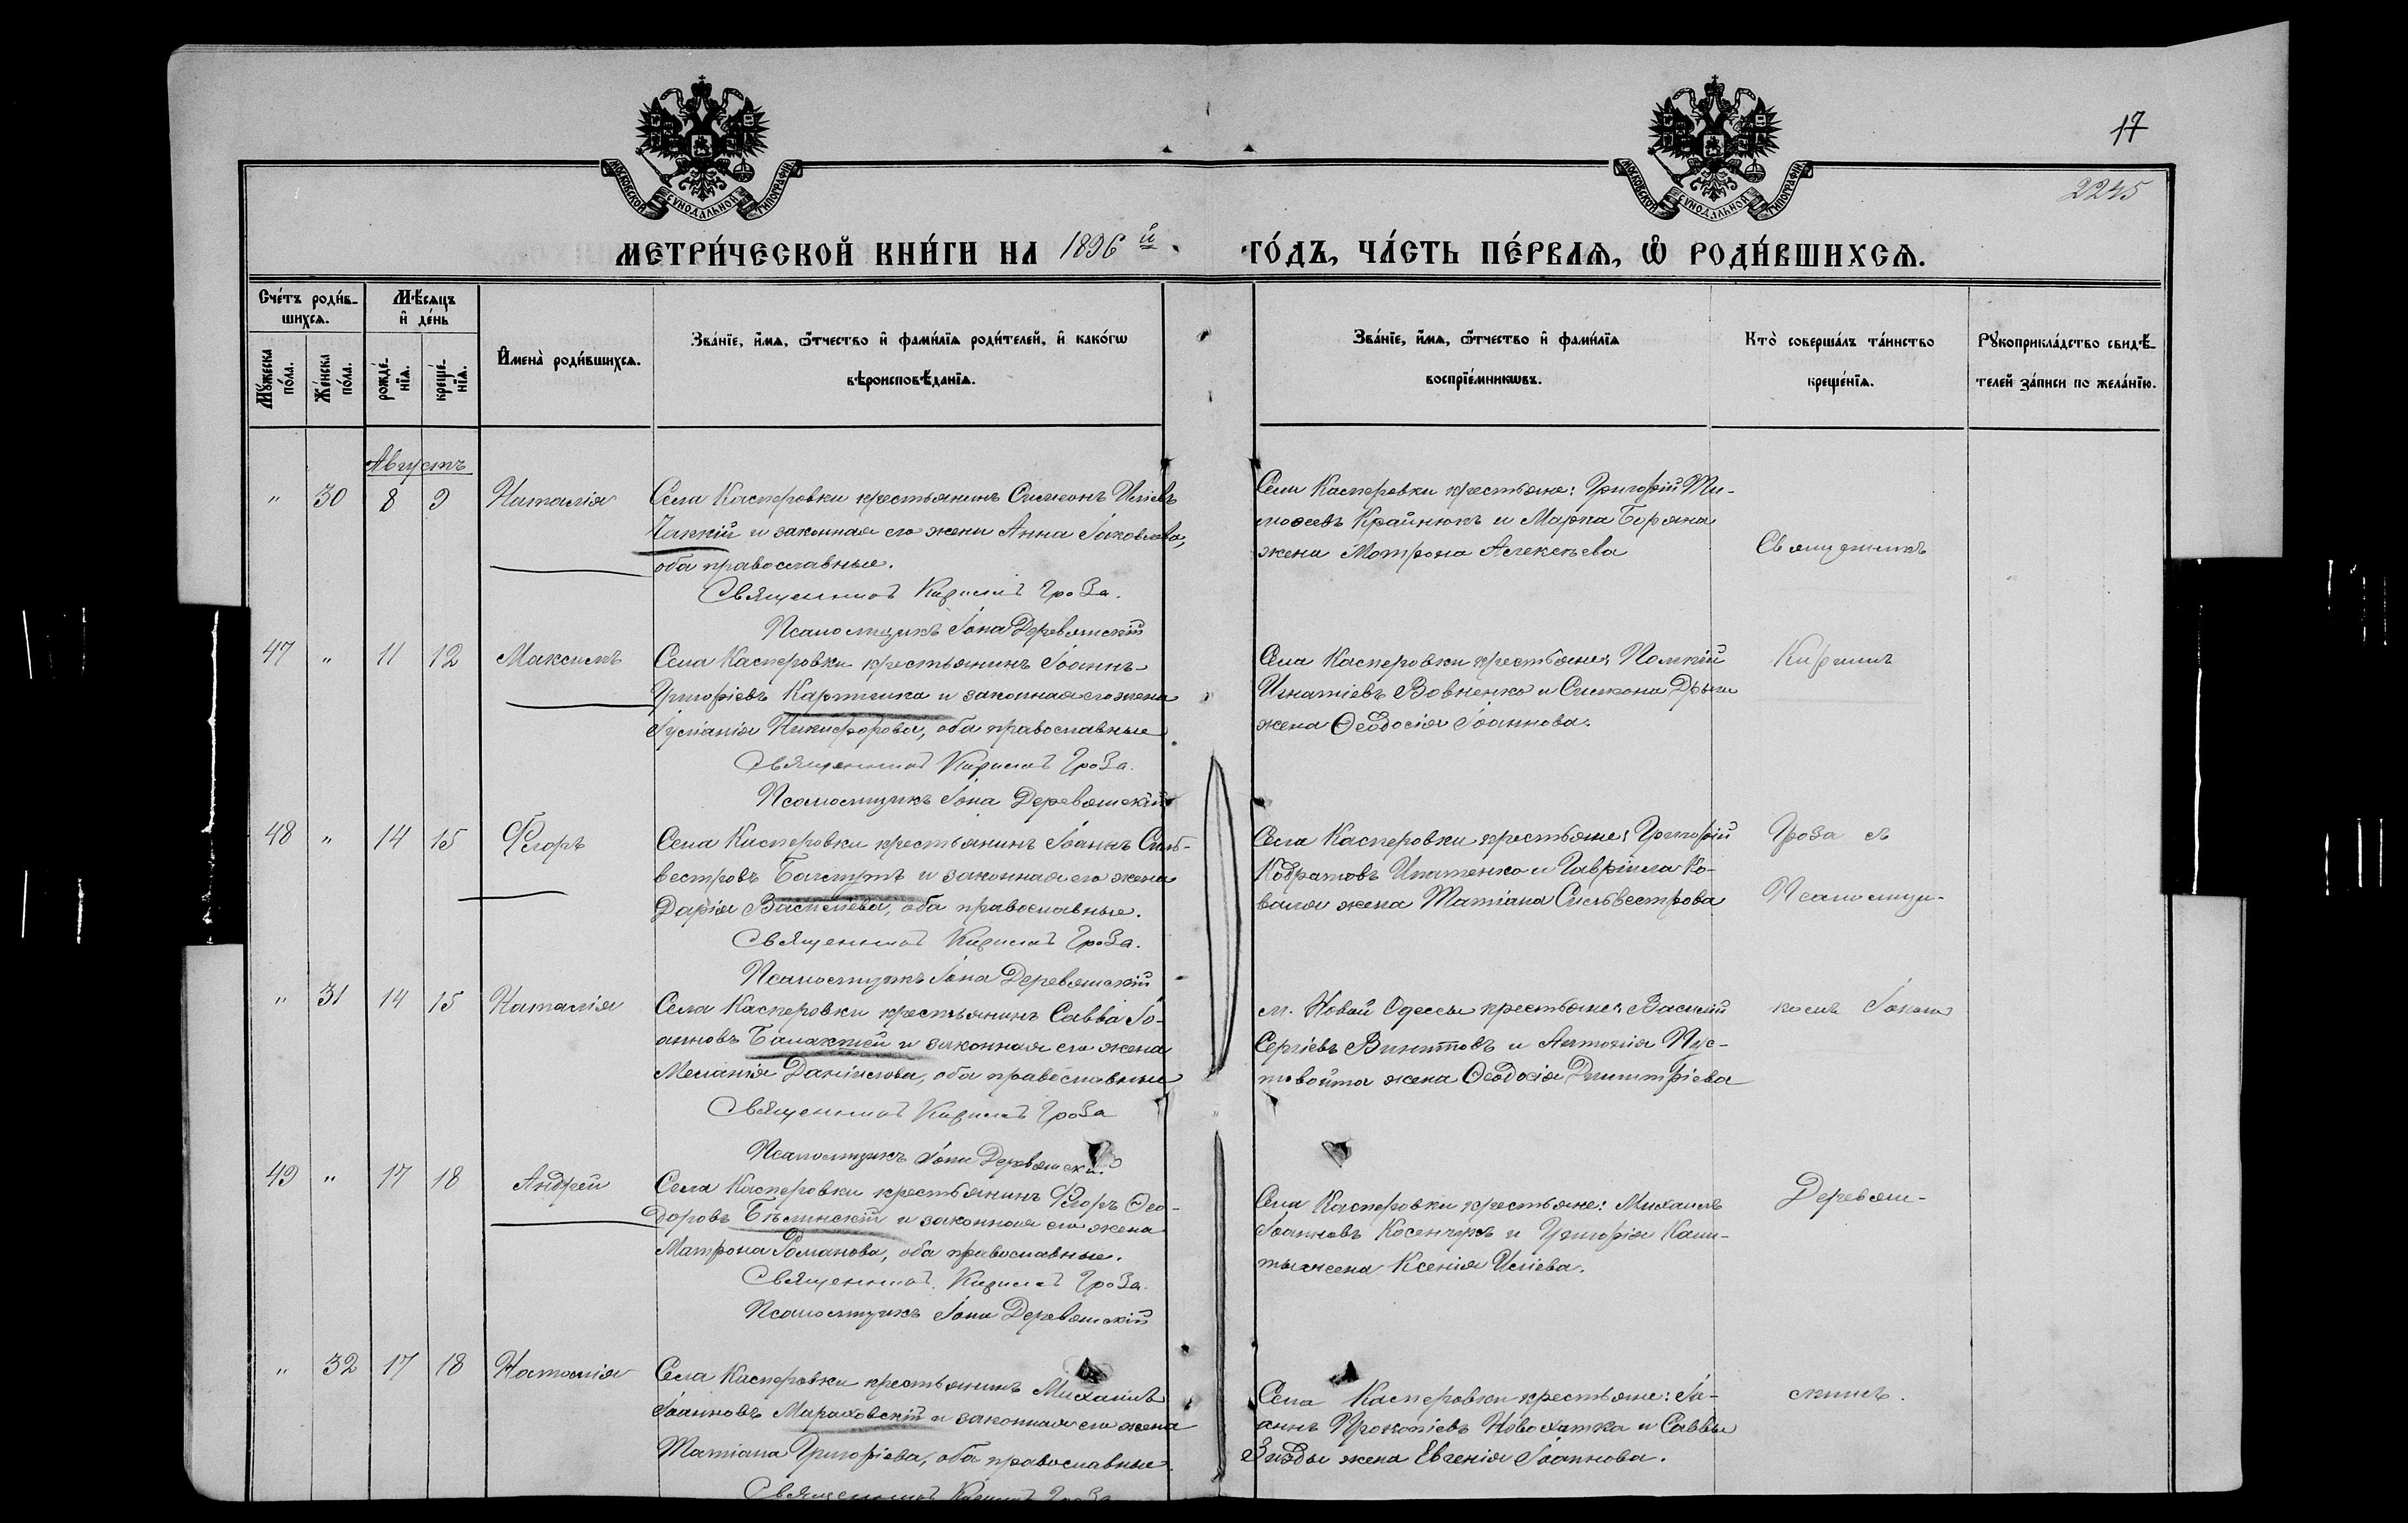 17
2245
МОСКОВСКОЙ СѴНОДАЛЬНОЙ ТИПОГРАФІИ
МОСКОВСКОЙ СѴНОДАЛЬНОЙ ТИПОГРАФІИ
МЕТРИ́ЧЕСКОЙ КНИ́ГИ НА 1896й ГО́ДЪ, ЧА́СТЬ ПЕ́РВАѦ, Ѡ РОДИ́ВШИХСѦ.
Сче́тъ роди́в-
шихсѧ.
Мѣ́сѧцъ
и де́нь
Мꙋ́жеска
по́ла.
Же́нска
по́ла.
рожде́-
нїѧ.
креще́-
нїѧ.
Имена̀ роди́вшихсѧ.
Зва́нїе, и́мѧ, ѻ́тчество и фами́лїѧ роди́телей, и како́гѡ
вѣроисповѣ́данїѧ.
Зва́нїе, и́мѧ, ѻ́тчество и фами́лїѧ
воспрїе́мникѡвъ.
Кто̀ соверша́лъ та́инство
креще́нїѧ.
Рꙋкоприкла́дство свидѣ́-
телей за́писи по жела́нїю.
Августъ
" 30 8 9 Наталія
Села Касперовки крестьянинъ Симеонъ Иліевъ
и законная его жена Анна Іаковлева,
оба православные.
Священникъ Кириллъ Гроза.
Псаломщикъ Іона Деревянскій
Села Касперовки крестьяне: Григорій Ти-
моѳеевъ Крайнюкъ и Марка
жена Матрона Алексѣева
Священникъ
47 " 11 12 Максимъ
Села Касперовки крестьянинъ Іоаннъ
Григоріевъ и законная его жена
Іуліанія Никифорова, оба православные
Священникъ Кириллъ Гроза.
Псаломщикъ Іона Деревянскій
Села Касперовки крестьяне:
Игнатіевъ Вовненко и Симеона
жена Ѳеодосія Іоаннова.
Кириллъ
48 " 14 15 Егоръ
Села Касперовки крестьянинъ Іоаннъ Силь-
вестровъ и законная его жена
Дарія Васильева, оба православные.
Священникъ Кириллъ Гроза.
Псаломщикъ Іона Деревянскій
Села Касперовки крестьяне: Григорій
Кодратовъ Ипатенко и Гавріила Ко-
валя жена Татіана Сильвестрова
Гроза съ
Псаломщи-
" 31 14 15 Наталія
Села Касперовки крестьянинъ Савва Іо-
анновъ Балакшей и законная его жена
Меланія Даніилова, оба православные
Священникъ Кириллъ Гроза
Псаломщикъ Іона Деревянскій
м. Новой Одессы крестьяне: Василій
Сергіевъ и Антонія Пус-
товойта жена Ѳеодосія Димитріева
комъ Іоною
49 " 17 18 Андрей
Села Касперовки крестьянинъ Егоръ Ѳео-
доровъ Бѣлинскій и законная его жена
Матрона Романова, оба православные.
Священникъ Кириллъ Гроза.
Псаломщикъ Іона Деревянскій
Села Касперовки крестьяне: Михаилъ
Іоанновъ Косенчукъ и Григорія
жена Ксенія Иліева.
Деревян-
" 32 17 18 Наталія
Села Касперовки крестьянинъ Михаилъ
Іоанновъ Мараховскій и законная его жена
Татіана Григоріева, оба православные.
Священникъ Кириллъ Гроза
Села Касперовки крестьяне: Іо-
аннъ Прокопіевъ Новохатка и Саввы
жена Евгенія Іоаннова.
скимъ.